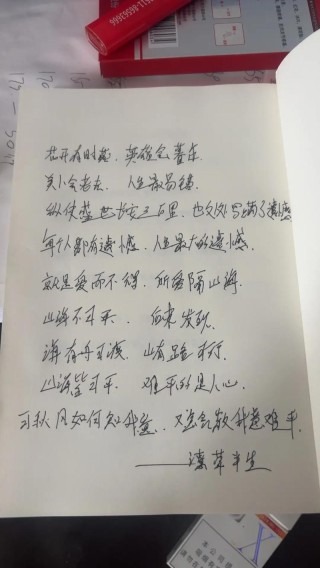 花开有时落. 英雄会暮年.
美人会老去. 人生最易错.
纵使盛世长安三万里. 也处处写满了遗憾
每个人都有遗憾. 人生最大的遗憾.
就是爱而不得. 所爱隔山海.
山海不可平. 后来发现.
海有舟可渡. 山有路可行.
山海皆可平. 难平的是人心.
可秋风如何知我意. 又怎会散我意难平.
——潦草半生